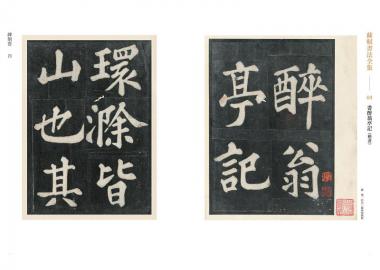 蘇軾書法全集
書醉翁亭記
醉翁
亭記
環滁皆
山也其